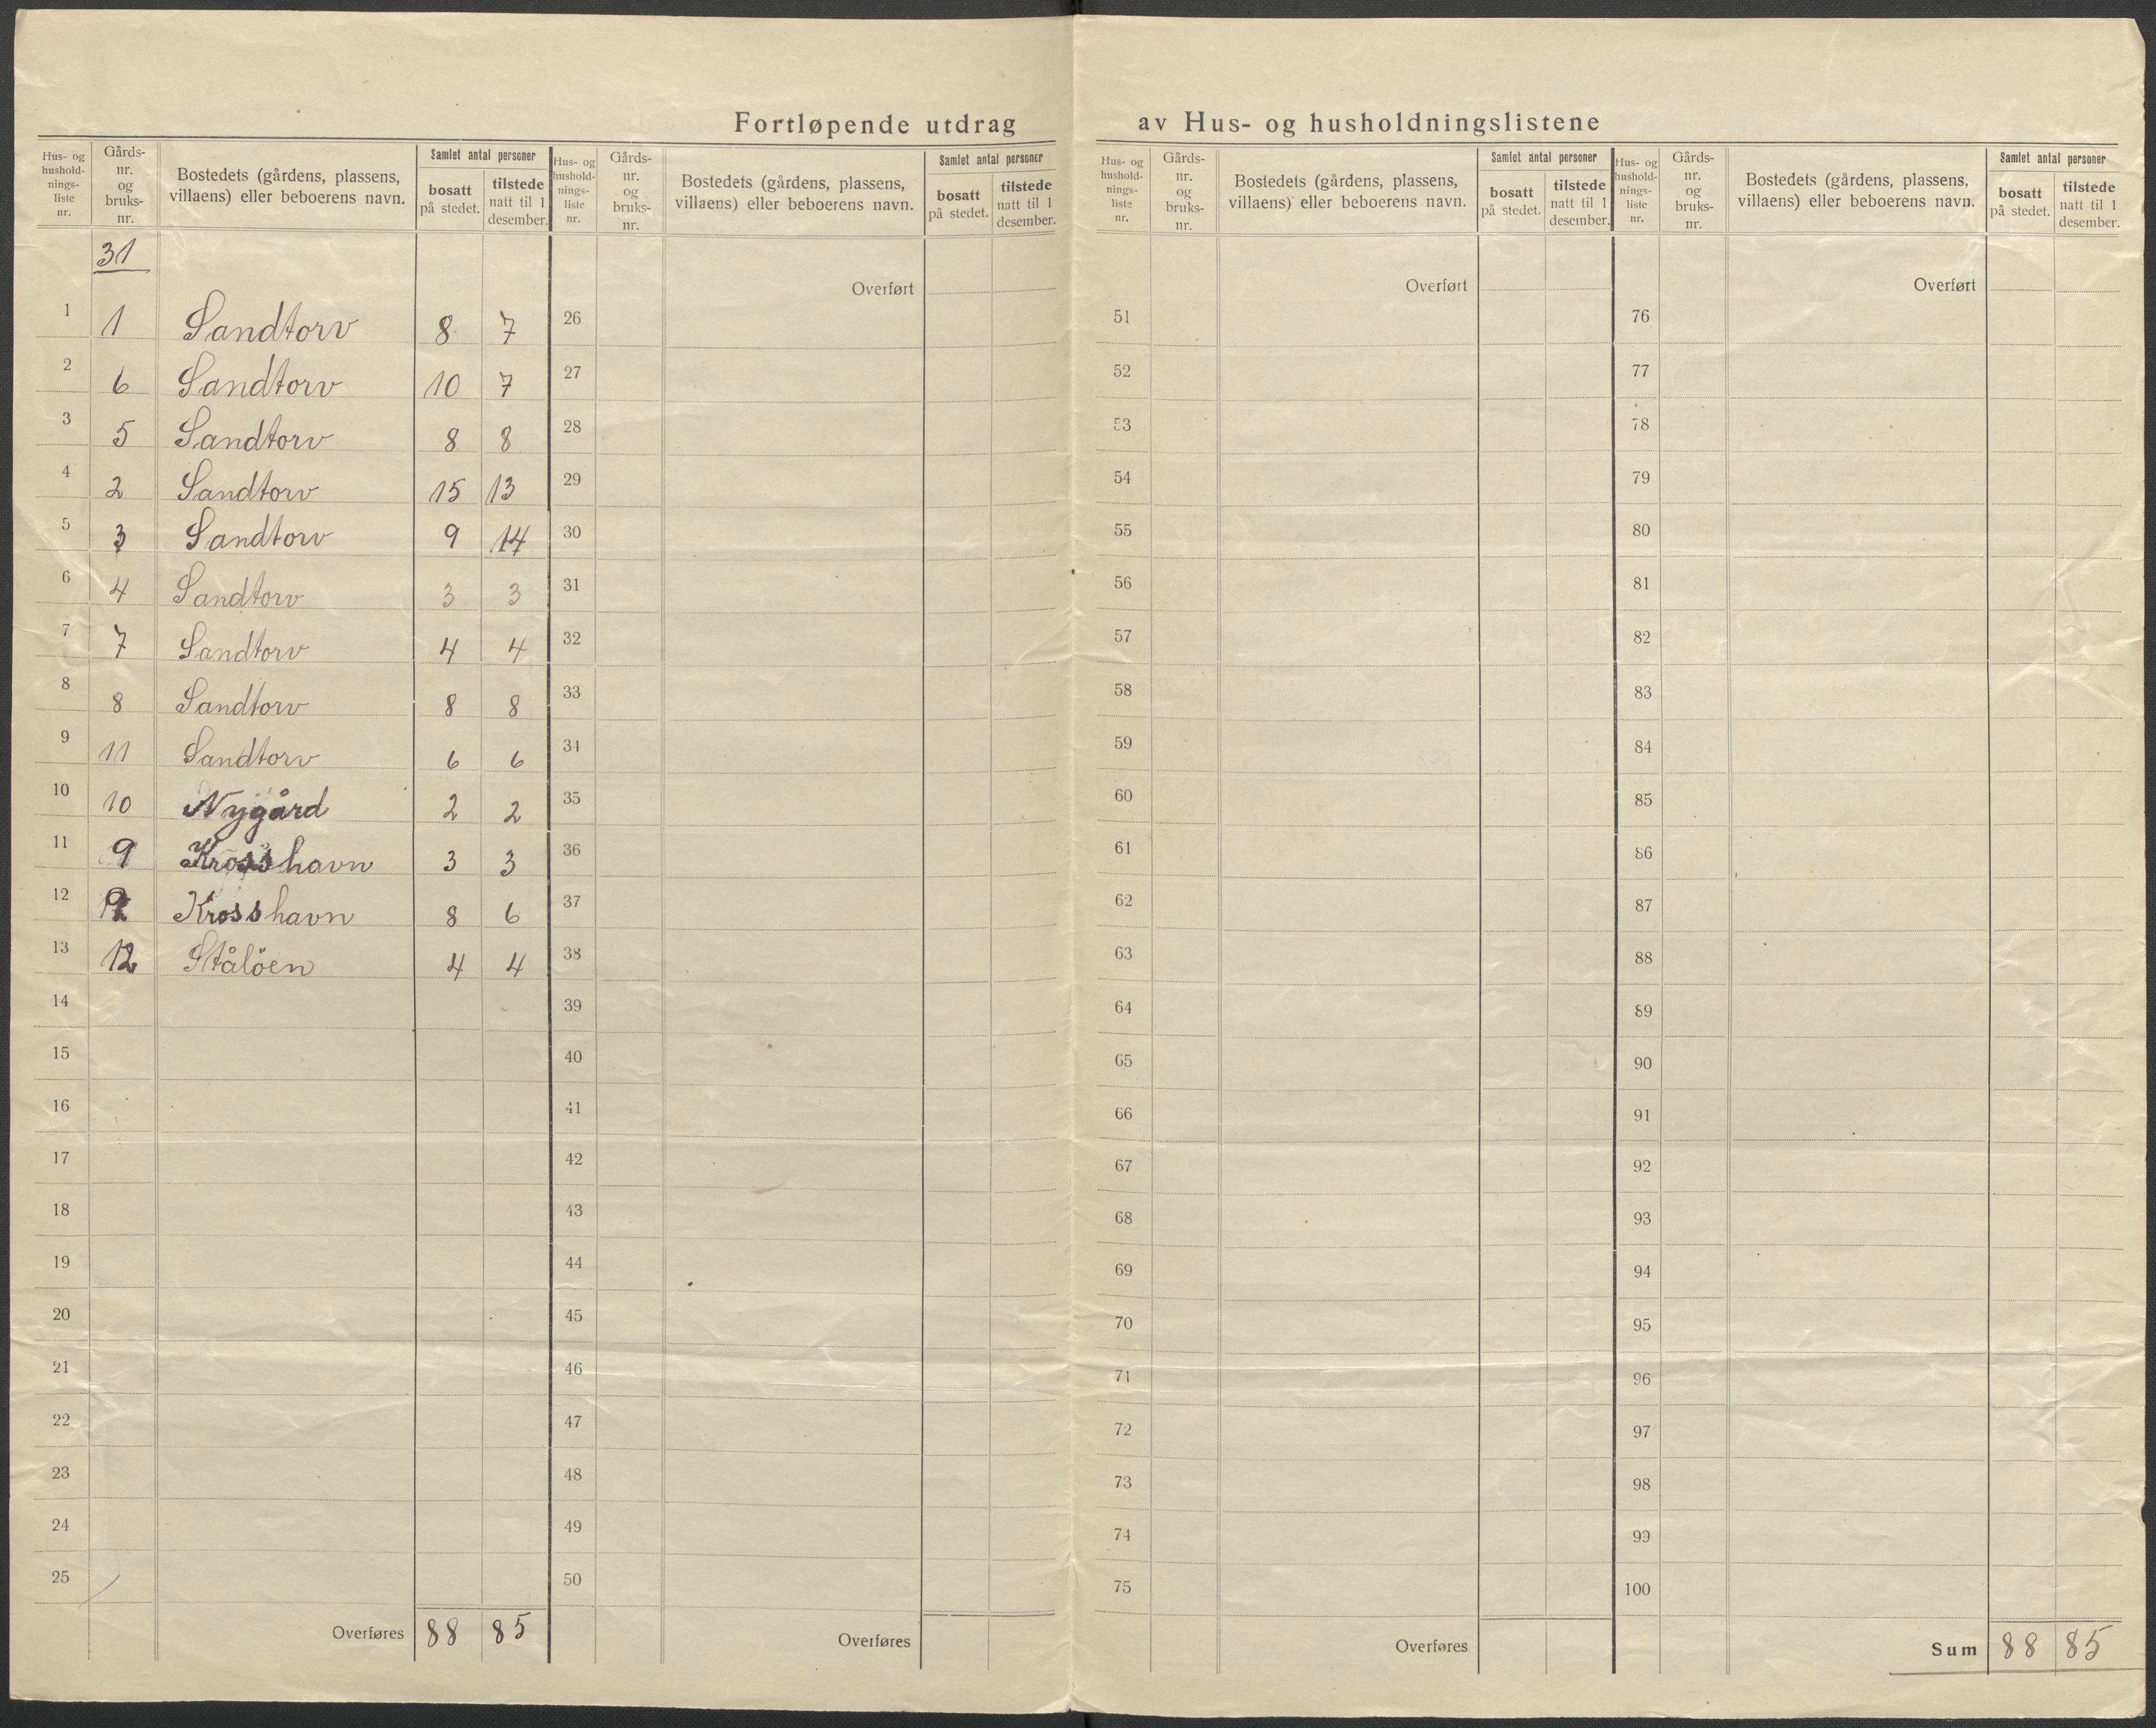 Fortløpende utdrag av Hus- og husholdningslistene
Hus- og hushold-nings-liste nr. Gårds-nr. og bruks-nr. Bostedets (gårdens, plassens, villaens) eller beboerens navn. Samlet antal personer bosatt på stedet. tilstede natt til 1 desember.
31
1 1 Sandtorv 8 7
2 6 Sandtorv 10 7
3 5 Sandtorv 8 8
4 2 Sandtorv 15 13
5 3 Sandtorv 9 14
6 4 Sandtorv 3 3
7 7 Sandtorv 4 4
8 8 Sandtorv 8 8
9 11 Sandtorv 6 6
10 10 Nygård 2 2
11 9 Krosshavn 3 3
12 Krosshavn 8 6
13 12 Stålöen 4 4
14
15
16
17
18
19
20
21
22
23
24
25
Overføres 88 85
Hus- og hushold-nings-liste nr. Gårds-nr. og bruks-nr. Bostedets (gårdens, plassens, villaens) eller beboerens navn. Samlet antal personer bosatt på stedet. tilstede natt til 1 desember.
Overført
26
27
28
29
30
31
32
33
34
35
36
37
38
39
40
41
42
43
44
45
46
47
48
49
50
Overføres
Hus- og hushold-nings-liste nr. Gårds-nr. og bruks-nr. Bostedets (gårdens, plassens, villaens) eller beboerens navn. Samlet antal personer bosatt på stedet. tilstede natt til 1 desember.
Overført
51
52
53
54
55
56
57
58
59
60
61
62
63
64
65
66
67
68
69
70
71
72
73
74
75
Overføres
Hus- og hushold-nings-liste nr. Gårds-nr. og bruks-nr. Bostedets (gårdens, plassens, villaens) eller beboerens navn. Samlet antal personer bosatt på stedet. tilstede natt til 1 desember.
Overført
76
77
78
79
80
81
82
83
84
85
86
87
88
89
90
91
92
93
94
95
96
97
98
99
100
Sum 88 85